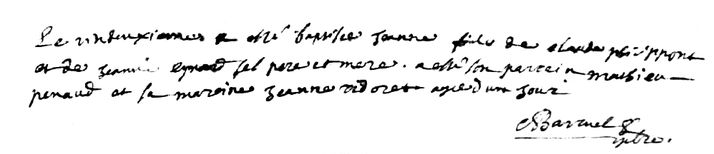 Le vindeuxiemes a esté baptisée Jeanne fille de claude phippont
et de Jeanne eynard ses pere et mere . a esté son parrein mathieu
penaud et sa mareine Jeanne vidoret agee dun Jour
Barruel
ptre.